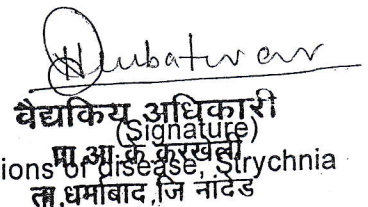 वैद्यकिय अधिकारी
(Signature)
प्रा.आ.के.करखेली
ions of disease, Strychnia
ता.धर्माबाद,जि नांदेड